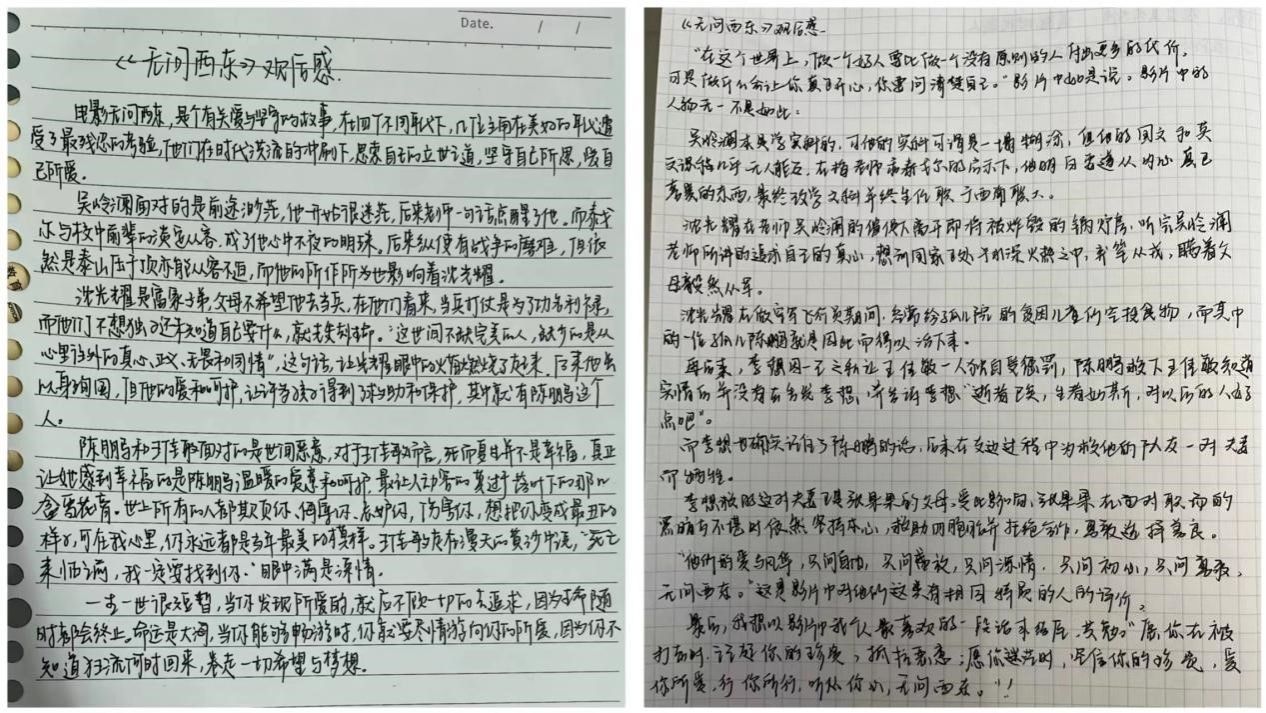 Date. / /
《无问西东》观后感.
电影无问西东,是个有关爱与坚守的故事,在四个不同年代下,几位主角在美好的年代遭
受了最残忍的考验,他们在时代洪流的冲刷下,思索自己的立世之道,坚守自己所思,爱自
己所爱。
吴岭澜面对的是前途渺茫,他开始很迷茫,后来老师一句话点醒了他。而泰戈
尔与校中前辈的淡定从容,成了他心中不夜的明珠。后来纵使有战争的磨难,但依
然是泰山压于顶亦能从容不迫,而他的所作所为也影响着沈光耀。
沈光耀是富家子弟,父母不希望他去当兵,在他们看来,当兵打仗是为了功名利禄,
而他们不想独子还未知道自己要什么,就失去。"这世间不缺完美的人,缺少的是从
心里给外的真心、正义、无畏和同情",这句话,让光耀眼中的火燃烧了起来,后来他虽
以身殉国,但他的爱和呵护,让许多孩子得到了救助和保护,其中就有陈鹏这个
人。
陈鹏和王佳敏面对的是世间恶意,对于王佳敏而言,死而复生并不是幸福,真正
让她感到幸福的是陈鹏温暖的爱意和呵护,最让人动容的莫过于落叶下的那
世上所有的人都欺负你、侮辱你、忘却你、伤害你,想把你变成最丑的
样子,可在我心里,你永远都是当年最美的模样。王佳敏在漫天的黄沙中说,"死亡
来临之前,我一定要找到你。"眼中满是深情。
一生一世很短暂,当你发现所爱的,就启不顾一切的去追求,因为生命随
时都会终止。命运是大河,当你能够畅游时,你就要尽情游向你的所爱,因为你不
知道狂流何时回来,卷走一切希望与梦想。
《无问西东》观后感.
"在这个世界上,做一个好人要比做一个没有原则的人付出更多的代价,
可是做什么会让你真正开心,你要问清楚自己。"影片中如是说。影片中的
人物无一不是如此:
吴岭澜本是学实科的,可他的实科可谓是一塌糊涂,但他的国文和英
文课程几乎无人能及,在梅老师和泰戈尔的启示下,他明白要遵从内心真正
喜爱的东西,最终改学文科并终生任教于西南联大。
沈光耀在老师吴岭澜的催促下离开即将被炸毁的锅炉房,听完吴岭澜
老师所讲的追求自己的真心,想到国家正处于水深火热之中,弃笔从戎,瞒着父
母毅然从军。
沈光耀在做空军飞行员期间,经常给孤儿院的贫困儿童们空投食物,而其中
的一位孤儿陈鹏就是因此而得以活下来。
再后来,李想因一己之私让王佳敏一人独自受惩罚,陈鹏救下王佳敏知道
实情后并没有去告发李想,并告诉李想"逝者已矣,生者如斯,对以后的人好
点吧"。
而李想也确实记住了陈鹏的话,后来在支边过程中为救他的队友一对夫妻
而牺牲。
李想救的这对夫妻正是张果果的父母,受此影响,张果果在面对职场的
黑暗与不堪时依然坚持本心,救助四胞胎并拒绝合作,勇敢选择善良。
"他们的爱与风华,只问自由,只问盛放,只问深情,只问初心,只问勇敢,
无问西东。"这是影片中对他们这类有相同特质的人的评价。
最后,我想以影片中我个人最喜欢的一段话来结尾,共勉:"愿你在被
打击时,记起你的珍贵,抵抗恶意;愿你迷茫时,坚信你的珍贵,爱
你所爱,行你所行,听从你心,无问西东。"!